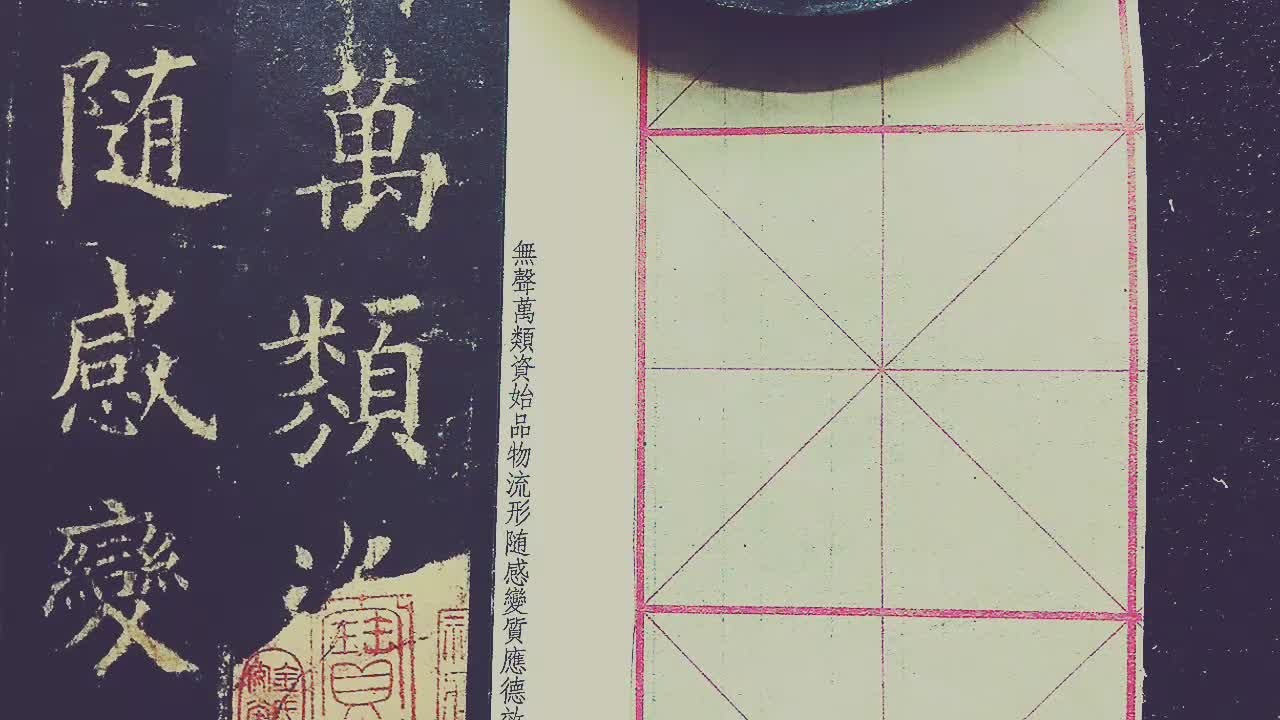 萬類資
随感變
無聲萬類資始品物流形随感變質應德效